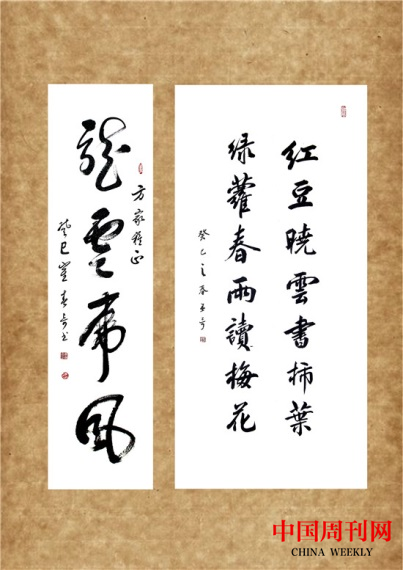 红豆曉雲書柿葉
绿蘿春雨讀梅花
癸巳之春
龍雲虎風
方家雅正
癸巳
中国周刊网
CHINA WEEKLY